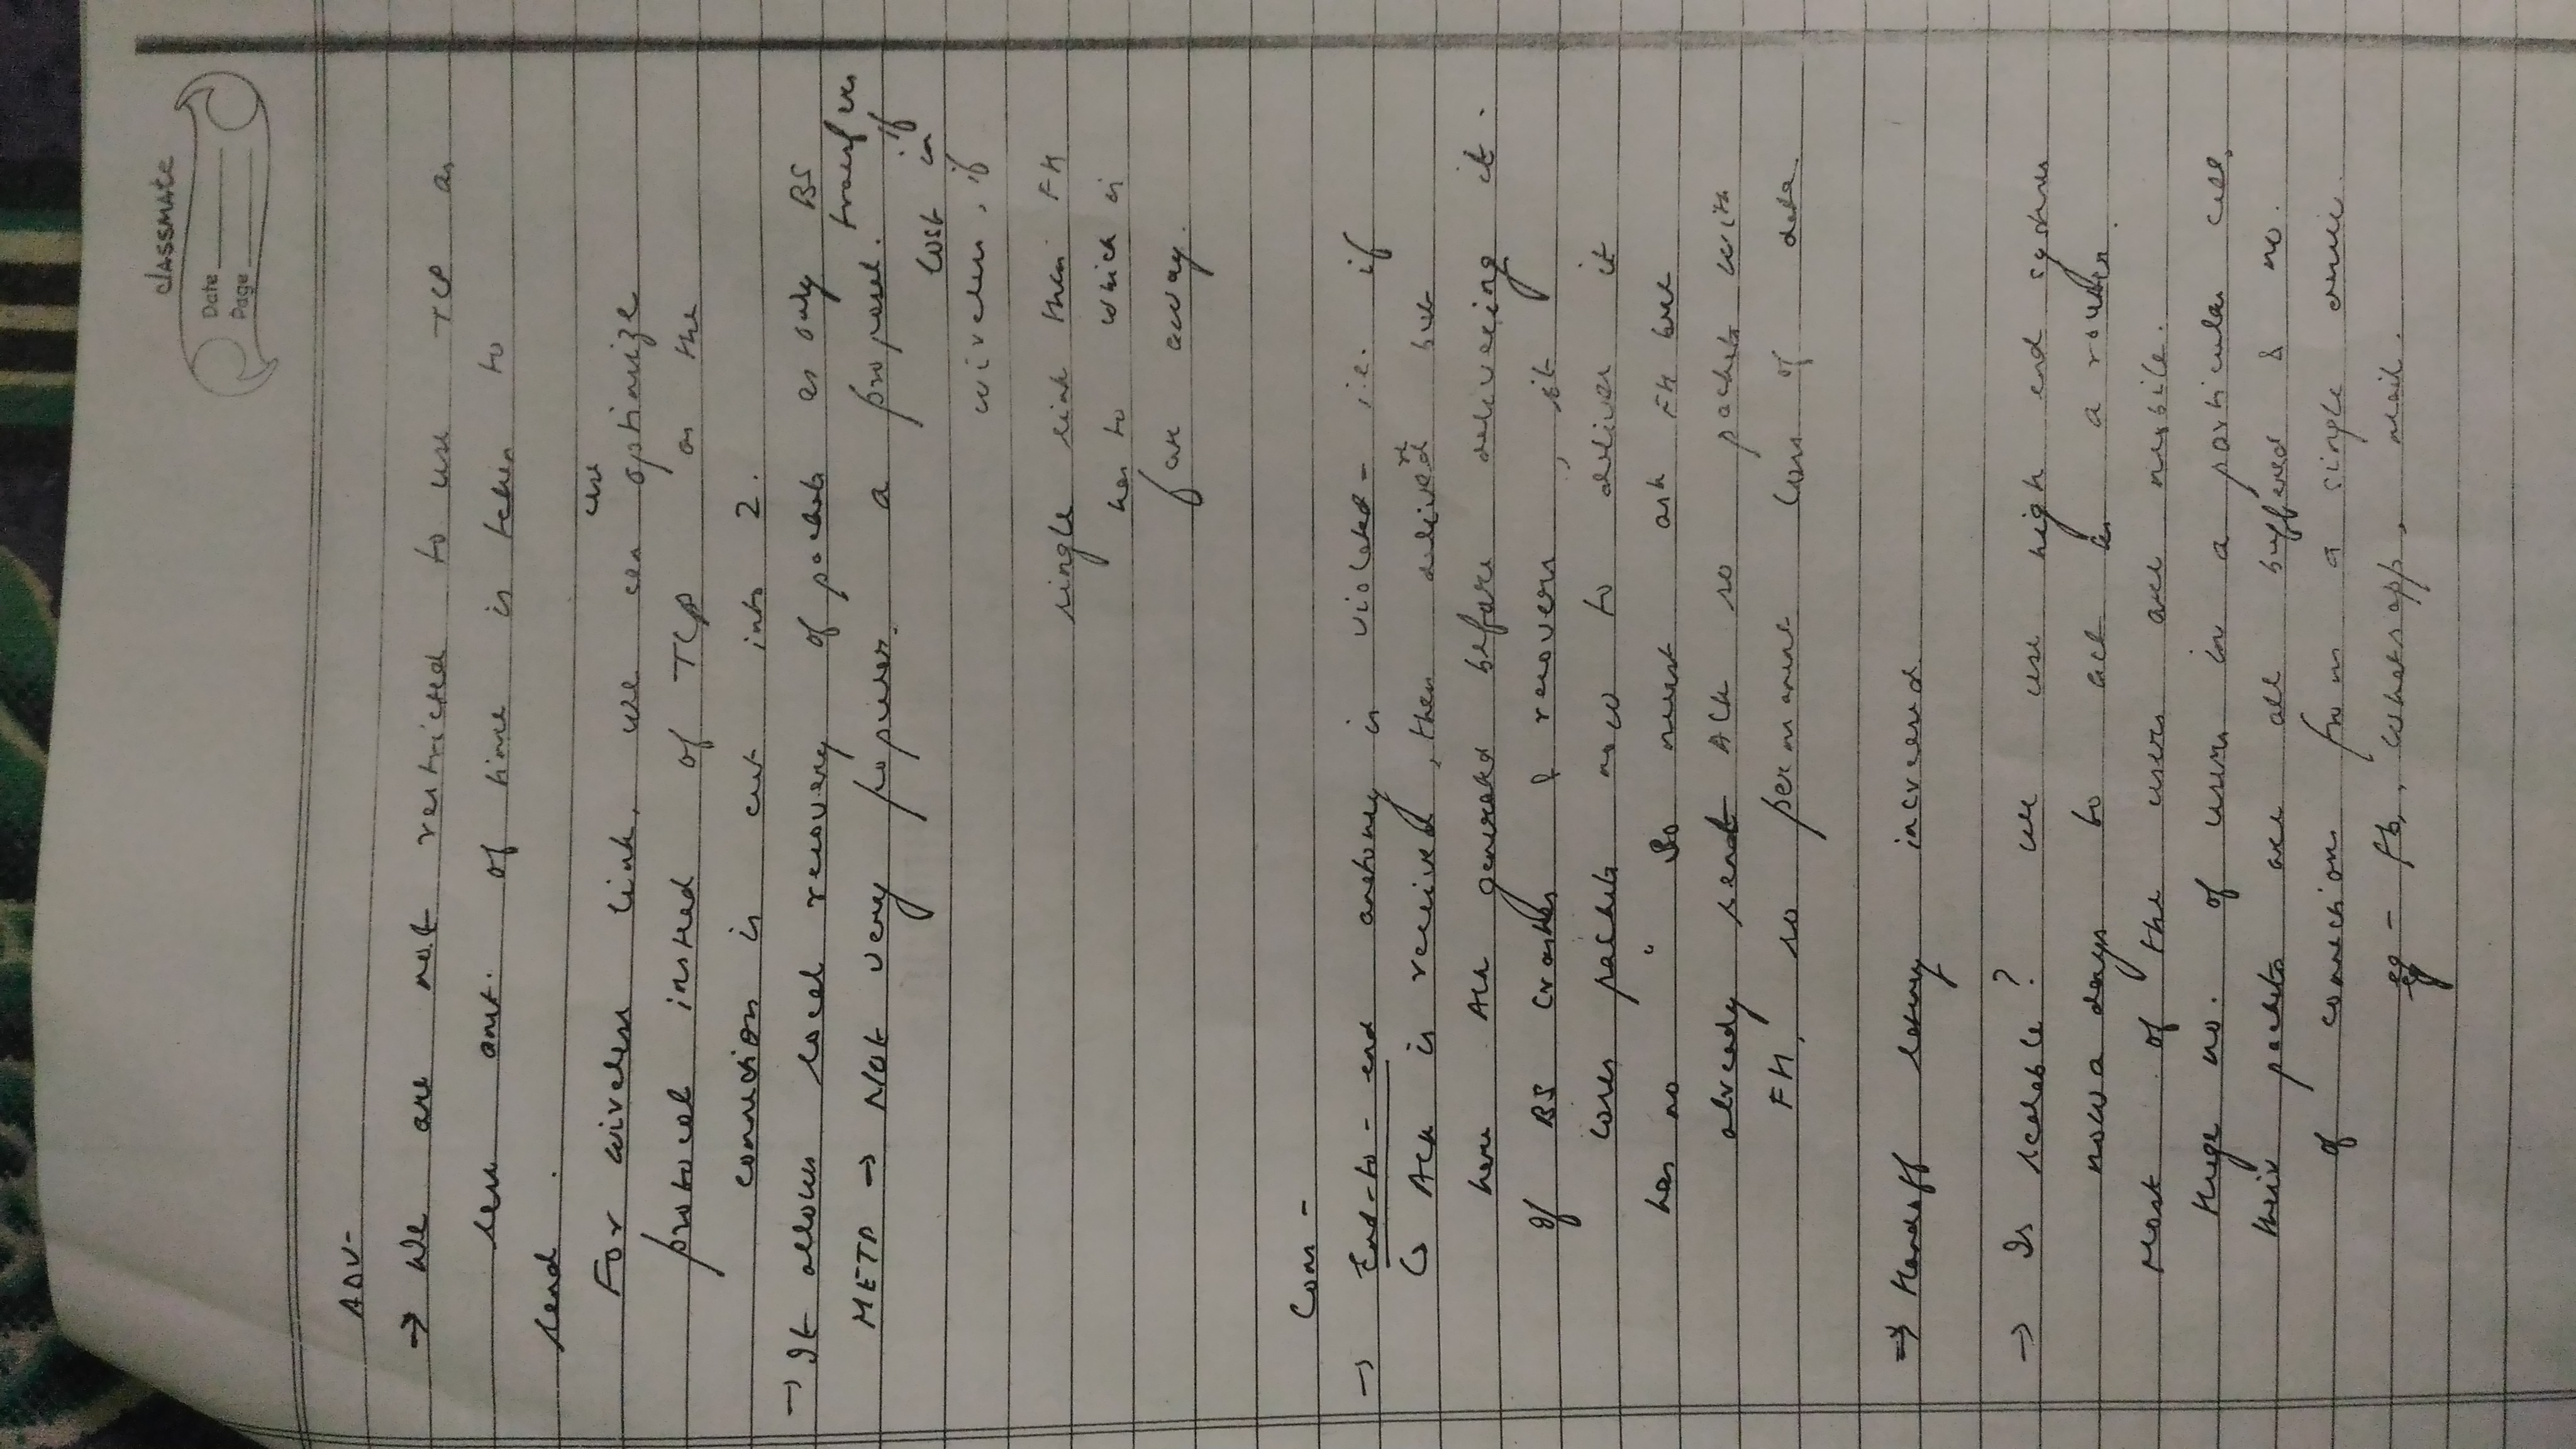 classmate
Date
Page
ADV-
→ We are not restricted to use TCP as
less amt. of time is taken to
send .
For wireless link, we can use optimize
protocol instead of TCP as the
connection is cut into 2.
→ It allows local recovery of packets as only BS
transfers
METP → Not very popular. a proposal. if
lost in
wireless, if
single link then FH
has to which is
far away.
Cons -
→ End-to-end is violated - i.e. if
↳ Ack is received, then delivered but
here Ack generated before delivering it.
If BS crashes & recovers, it
loses packets now to deliver it
has no " So must ask FH but
already send Ack so packets with
FH, so permanent loss of data.
⇒ Handoff latency increased.
→ Is scalable? we use high end systems
nowa days to act as a router.
Most of the users are mobile.
Huge no. of users in a particular cell,
their packets are all buffered & no.
of connections from a single
eg - fb, whatsapp, mail.